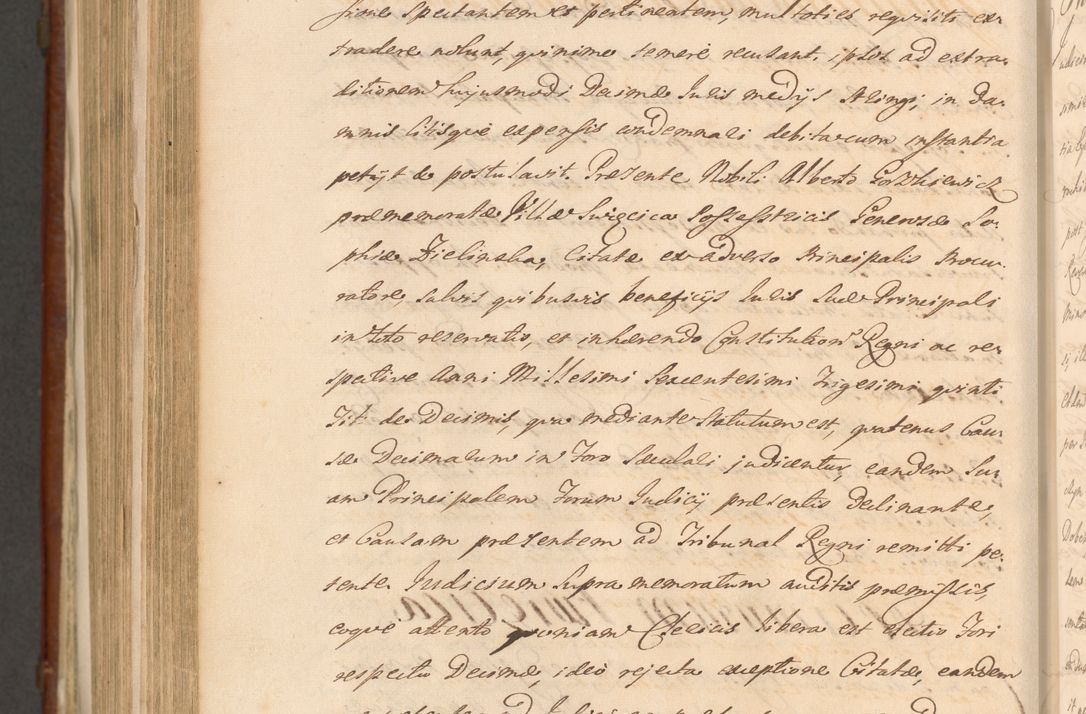 sione spectantem et pertinentem, multoties requisiti ex-
tradere nolunt, quinimo temere recusant, ipsos ad extra-
ditionem hujusmodi Decimæ Juris medijs stringi, in Da-
mnis litisque expensis condemnari debitarum instantia
petijt & postulavit. Præsente Nobili Alberto
præmemoratæ Villæ Possessricis Generosæ So-
phiæ Zielinska, Citatæ ex adverso Principalis Procu-
ratore, salvis quibusvis beneficijs Juris suæ Principali
in toto reservatis, et inhærendo Constitutioni Regni ac re-
spective Anni Millesimi Sexcentesimi Trigesimi quinti
Tit: de Decimis, qua mediante statutum est, quatenus Cau-
sæ Decimarum in Foro sæculari judicentur, eandem su-
am Principalem Forum Judicij præsentis declinante,
et Causam præsentem ad Tribunal Regni remitti pe-
tente. Judicium supra memoratum auditis præmissis,
eoque attento quoniam Clericis libera est electio Fori
respectu Decimæ, ideo rejecta exceptione Citatæ, eandem